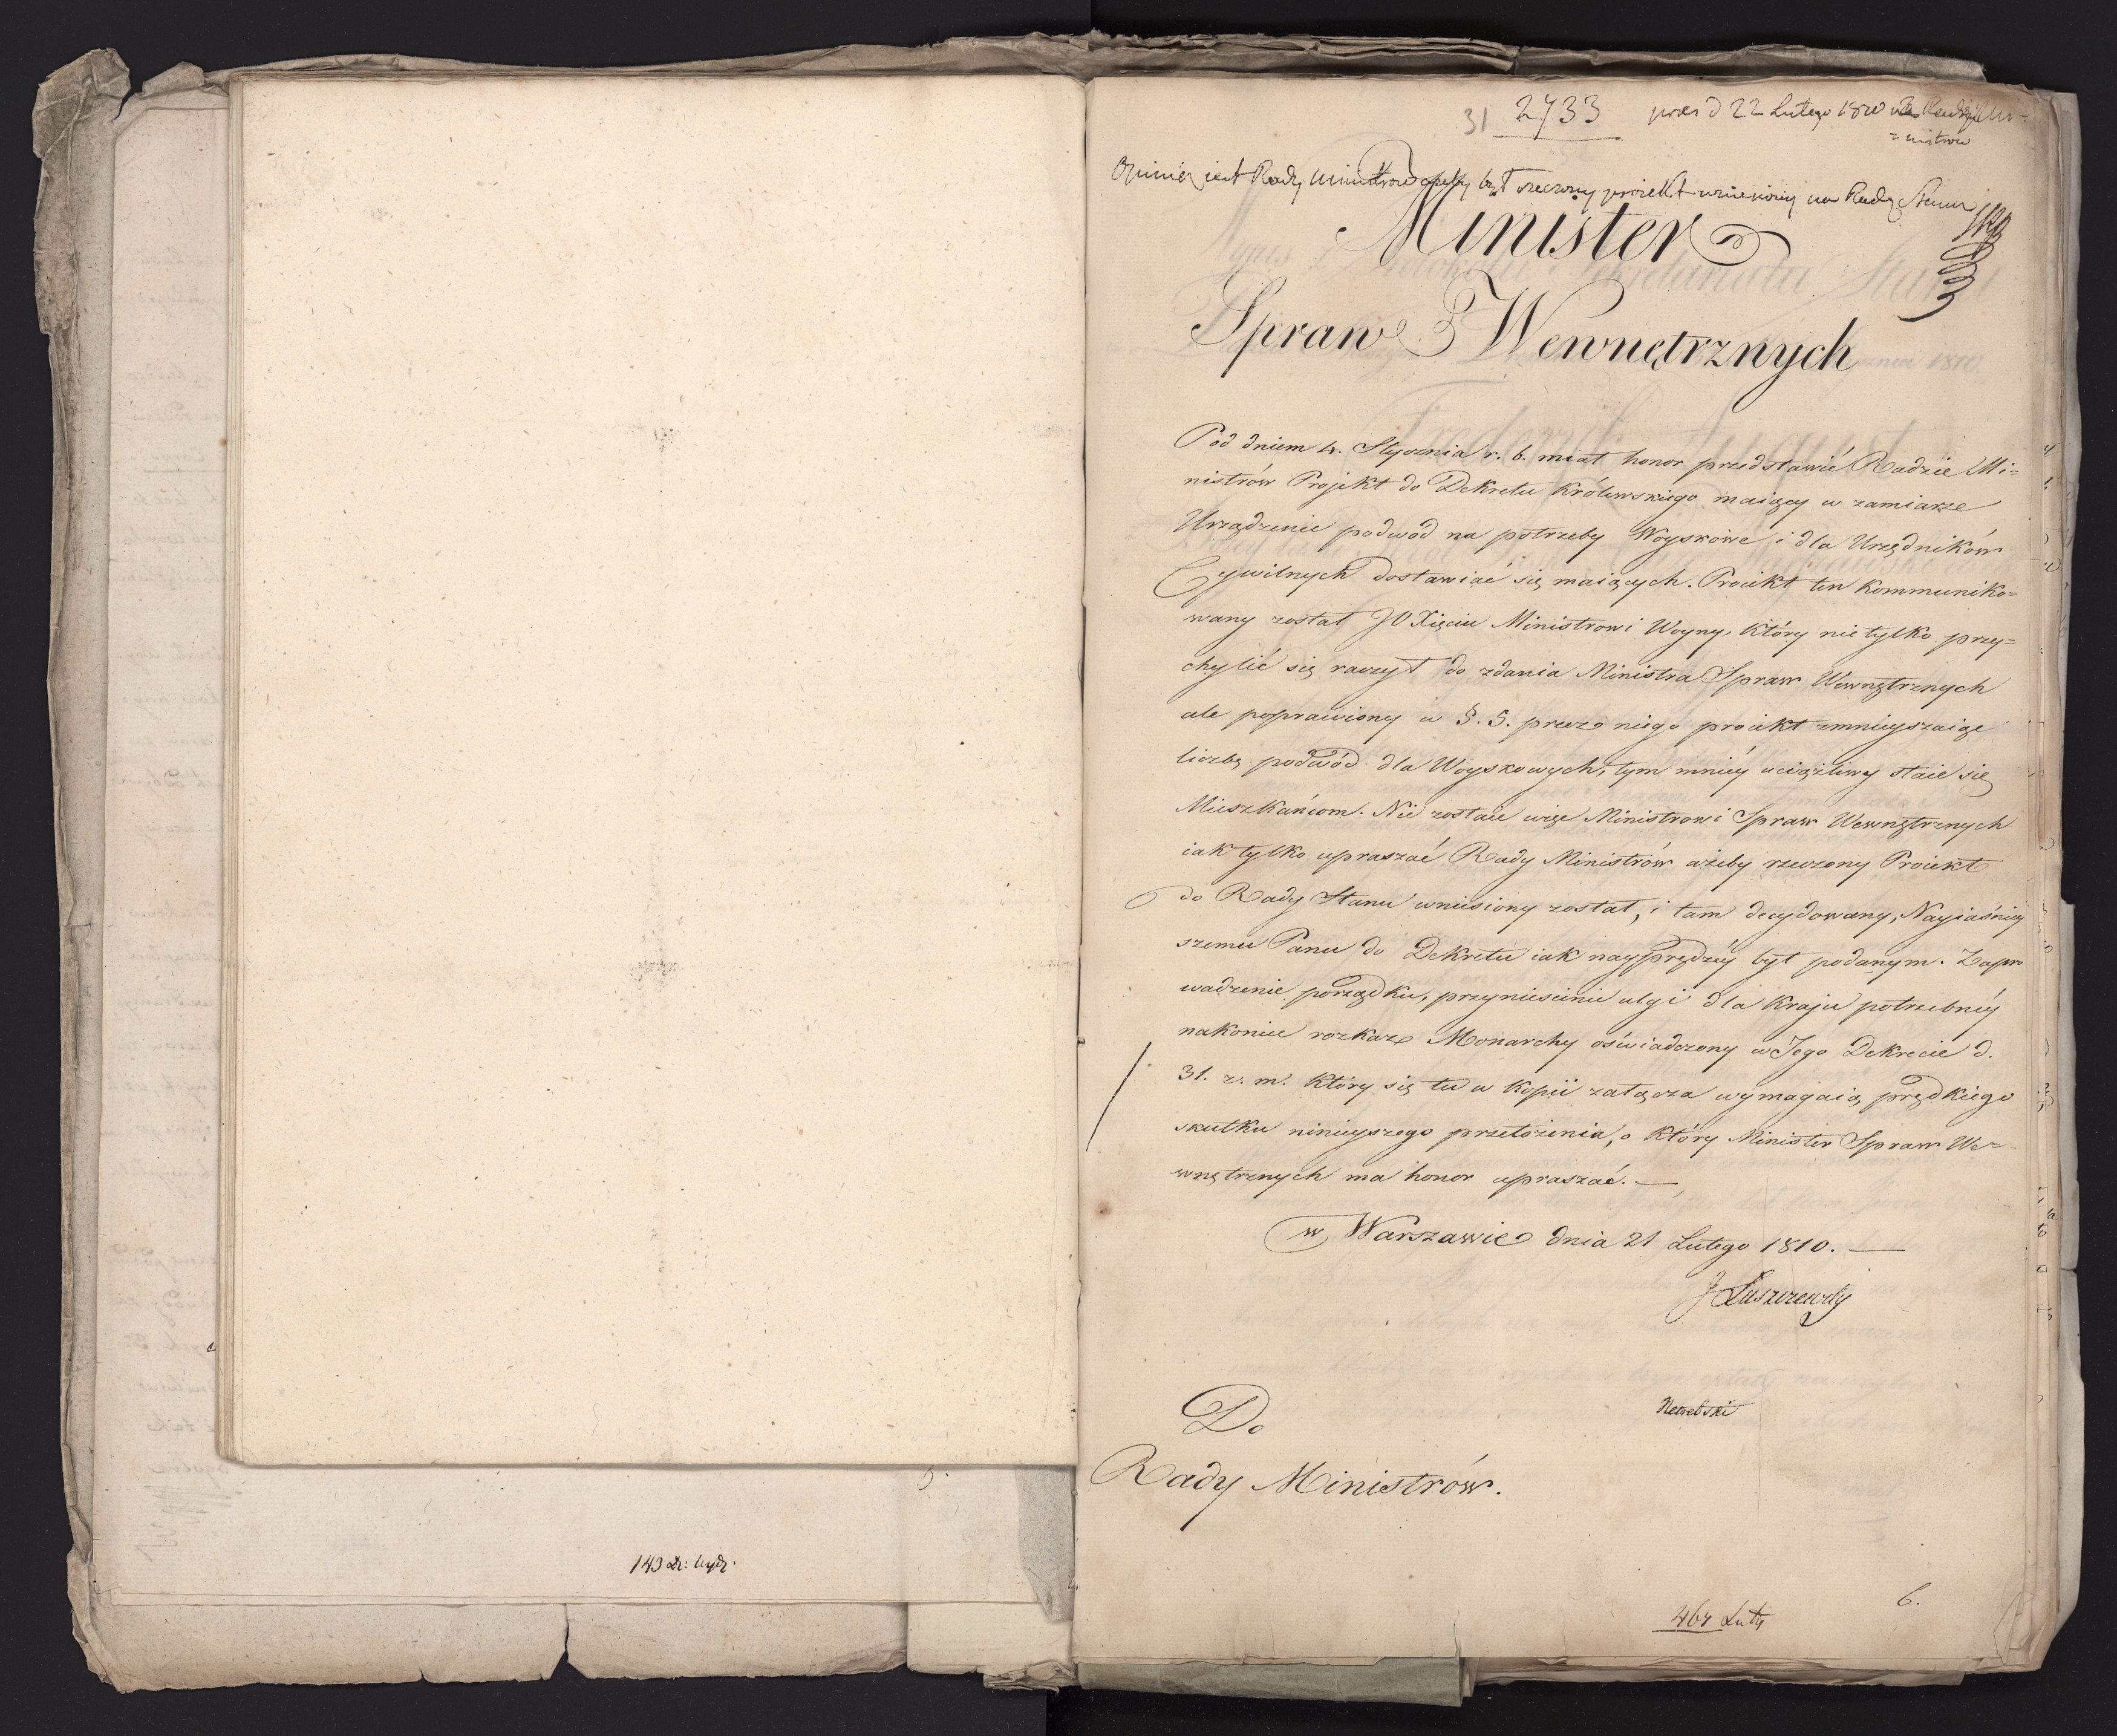 31 2733 pres d 22 Lutego 1810 na Radzie Mi=
=nistrów
Opinią iest Rady Ministrow ażeby był rzeczony proiekt wniesiony na Radę Stanu
Minister
Spraw Wewnętrznych
Pod dniem 4. Stycznia r. b. miał honor przedstawić Radzie Mi=
nistrów Projekt do Dekretu Królewskiego maiący w zamiarze
Urządzenie podwód na potrzeby Woyskowe i dla Urzędników
Cywilnych dostawiać się maiących. Proiekt ten kommuniko=
wany został JO Xięciu Ministrowi Woyny, który nie tylko przy=
chylić się raczył do zdania Ministra Spraw Wewnętrznych
ale poprawiony w §. 5. przez niego proiekt zmnieyszaiąc
liczbę podwód dla Woyskowych, tym mniéy uciążliwy staie się
Mieszkańcom. Nie zostaie więc Ministrowi Spraw Wewnętrznych
iak tylko upraszać Rady Ministrów ażeby rzeczony Proiekt
do Rady Stanu wniesiony został, i tam decydowany, Nayiaśniey
szemu Panu do Dekretu iak nayprędzéy był podanym. Zapro
wadzenie porządku, przyniesienie ulgi dla kraju potrzebnéy
nakoniec rozkaz Monarchy oświadczony w Jego Dekrecie d.
31. z. m. który się tu w kopii załącza wymagaią prędkiego
skutku ninieyszego przełożenia, o który Minister Spraw We=
wnętrznych ma honor upraszać. —
w Warszawie dnia 21 Lutego 1810. —
J Łuszczewsky
Do
Rady Ministrów.
6.